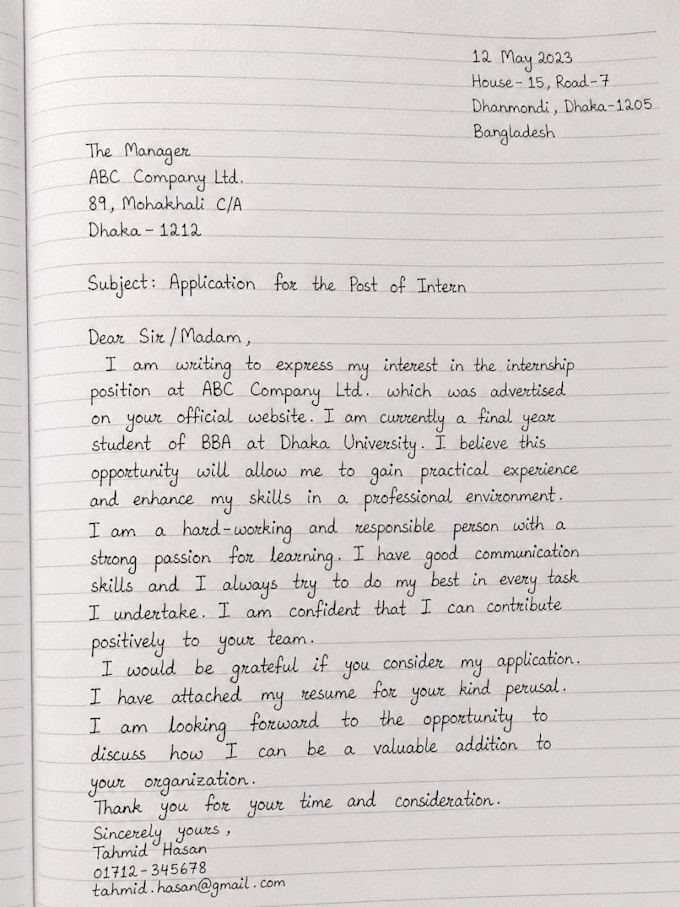 12 May 2023
House-15, Road-7
Dhanmondi, Dhaka-1205
Bangladesh
The Manager
ABC Company Ltd.
89, Mohakhali C/A
Dhaka-1212
Subject: Application for the Post of Intern
Dear Sir/Madam,
I am writing to express my interest in the internship
position at ABC Company Ltd. which was advertised
on your official website. I am currently a final year
student of BBA at Dhaka University. I believe this
opportunity will allow me to gain practical experience
and enhance my skills in a professional environment.
I am a hard-working and responsible person with a
strong passion for learning. I have good communication
skills and I always try to do my best in every task
I undertake. I am confident that I can contribute
positively to your team.
I would be grateful if you consider my application.
I have attached my resume for your kind perusal.
I am looking forward to the opportunity to
discuss how I can be a valuable addition to
your organization.
Thank you for your time and consideration.
Sincerely yours,
Tahmid Hasan
01712-345678
tahmid.hasan@gmail.com